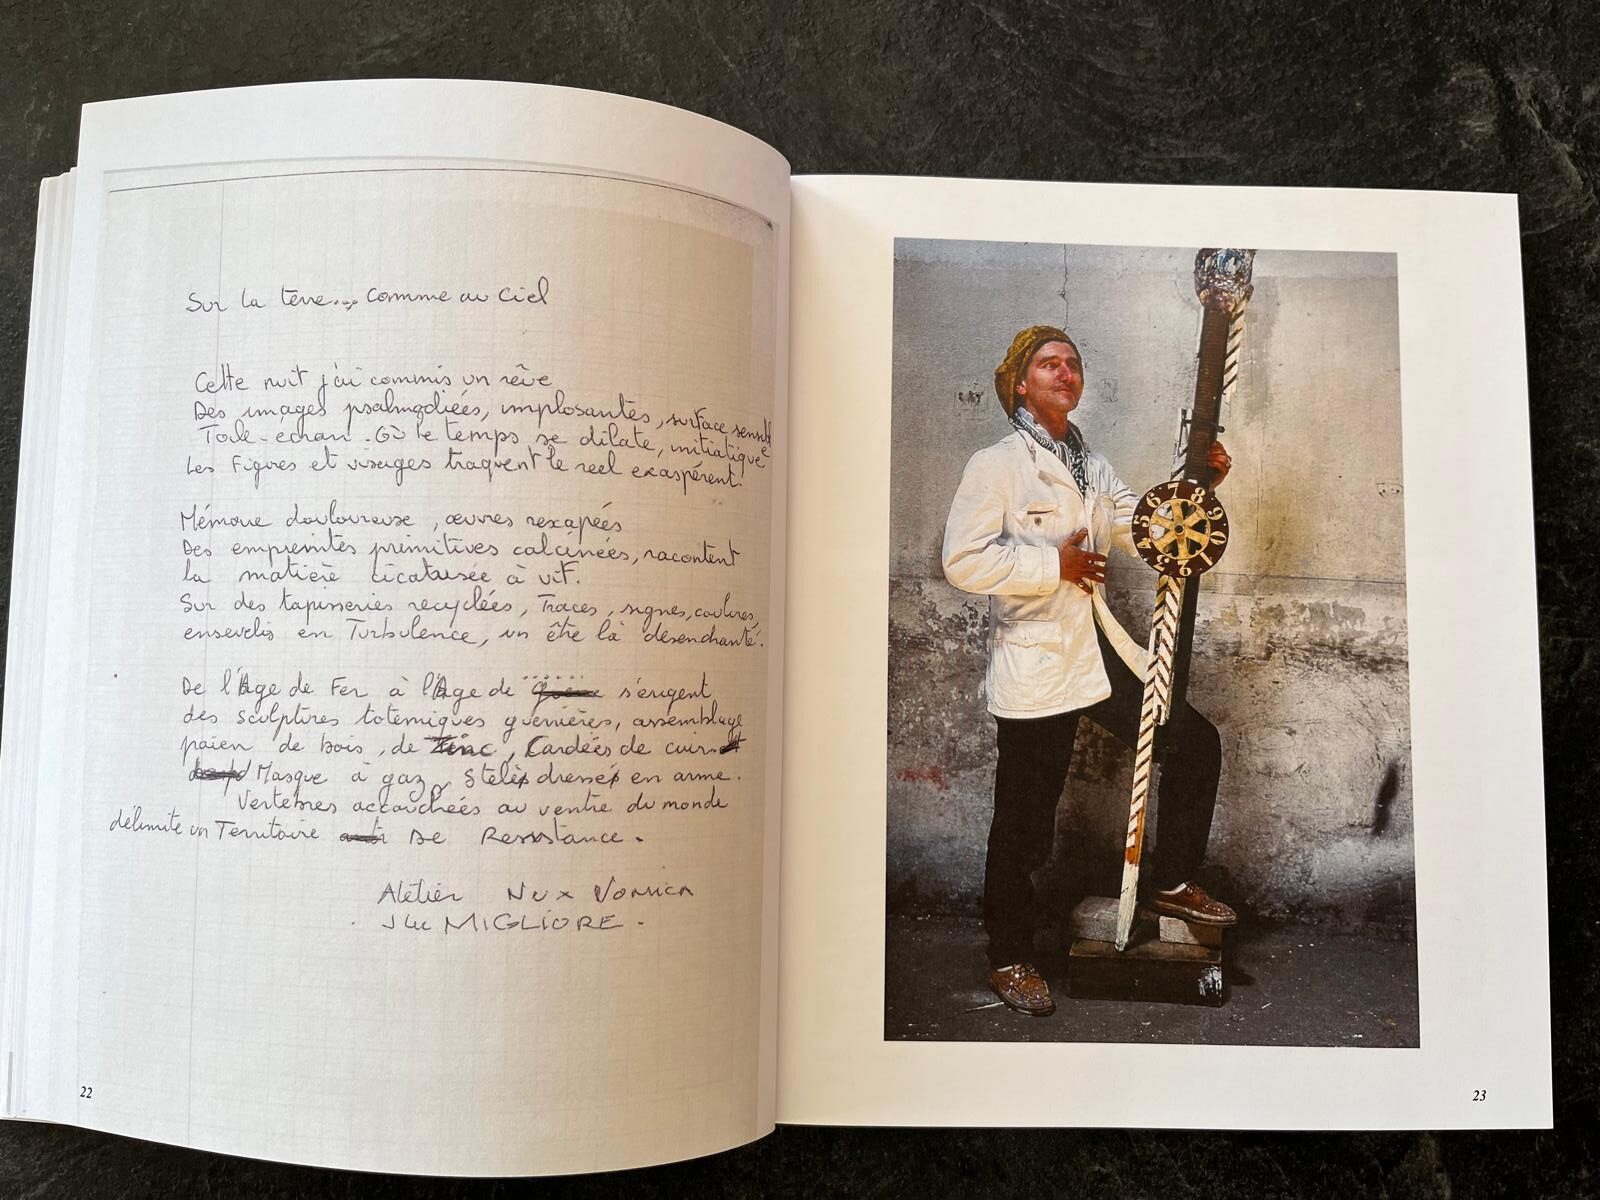 Sur la terre... comme au ciel
Cette nuit j'ai commis un rêve
Des images psalmodiées, implosantes, surface sensible
Toile-écran. Où le temps se dilate, initiatique
Les Figures et visages traquent le reel exaspérent.
Mémoire douloureuse, œuvres rescapées
Des empreintes primitives calcinées, racontent
la matière cicatrisée à vif.
Sur des tapisseries recyclées, Traces, signes, coulures,
ensevelis en Turbulence, un être là désenchanté.
De l'Age de Fer à l'Age de s'erigent
des sculptures totemiques guerrières, assemblage
païen de bois, de Zinc, Cardées de cuir
Masque à gaz, Stelès dressés en arme.
Vertebres accouchées au ventre du monde
délimite un Territoire De Resistance.
Atelier Nux Vomica
JLuc MIGLIORE.
22
5 6 7 8 9 0 1 2 3 4
23